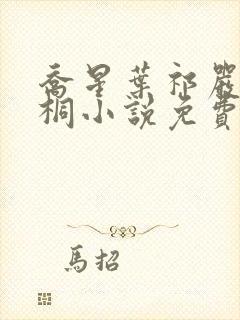 喬星葉祁嚴
桐小說免費
馬招